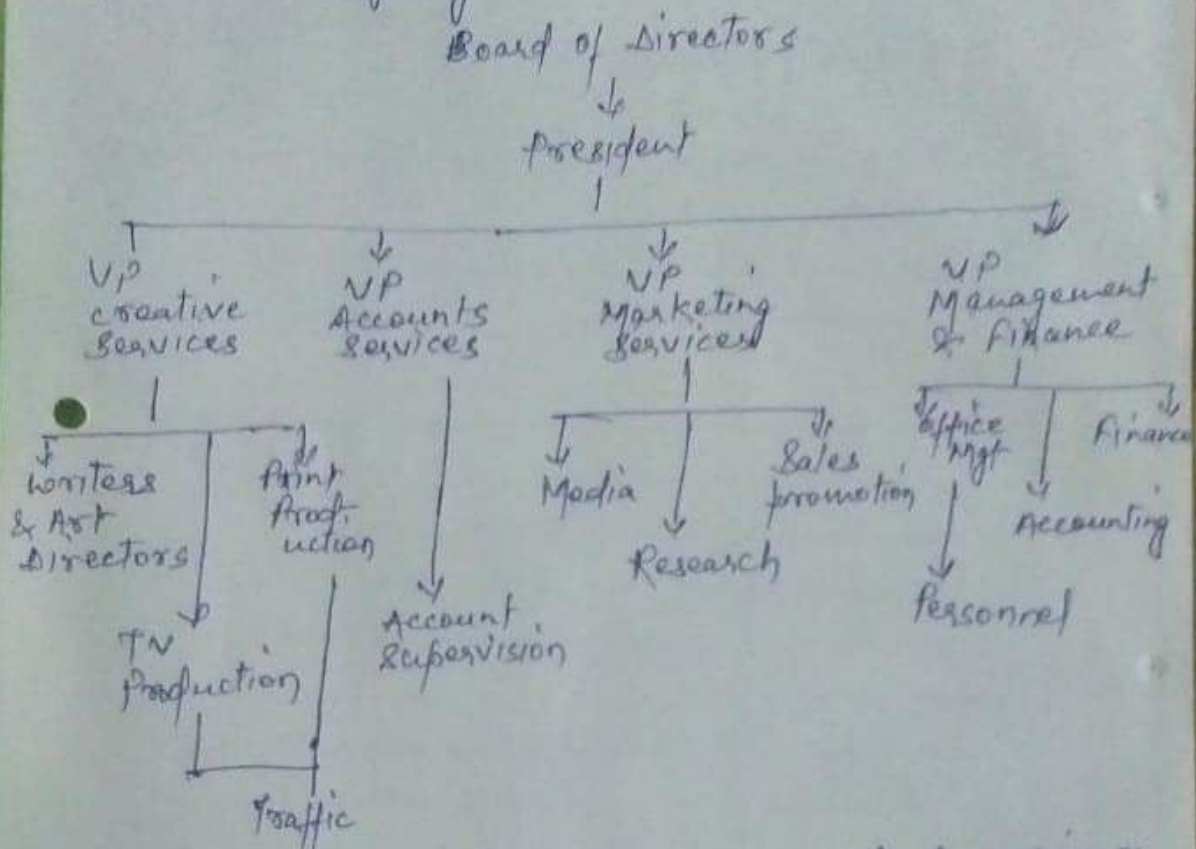 Board of Directors
President
VP
creative
Services
VP
Accounts
Services
VP
Marketing
Services
VP
Management
& Finance
Writers
& Art
Directors
Print
Prod-
uction
TV
Production
Traffic
Account
Supervision
Media
Research
Sales
promotion
Office
Mgt
Personnel
Accounting
Finance